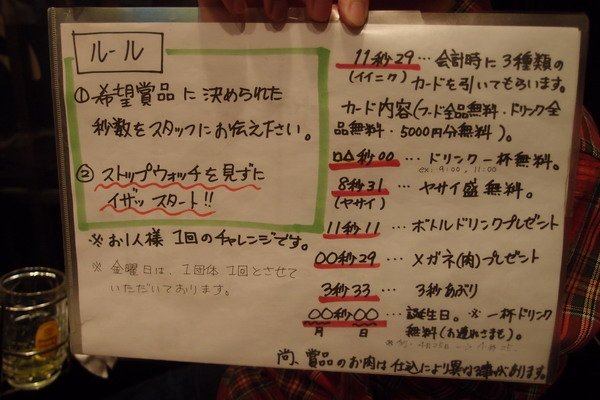 ルール
①希望賞品に決められた
秒数をスタッフにお伝え下さい。
②ストップウォッチを見ずに
イザッ スタート!!
※お1人様 1回のチャレンジです。
※ 金曜日は、1団体 1回とさせて
いただいております。
11秒29…会計時に3種類の
(イイニク) カードを引いてもらいます。
カード内容(フード全品無料・ドリンク全
品無料・5000円分無料)。
ロ△秒00…ドリンク一杯無料。
ex: 9:00, 11:00
8秒31…ヤサイ盛無料。
(ヤサイ)
11秒11…ボトルドリンクプレゼント
00秒29…メガネ(肉)プレゼント
3秒33…3秒あぶり
00秒00…誕生日。※一杯ドリンク
月 日 無料(お連れさまも)。
尚、賞品のお肉は仕込により異なる事があります。